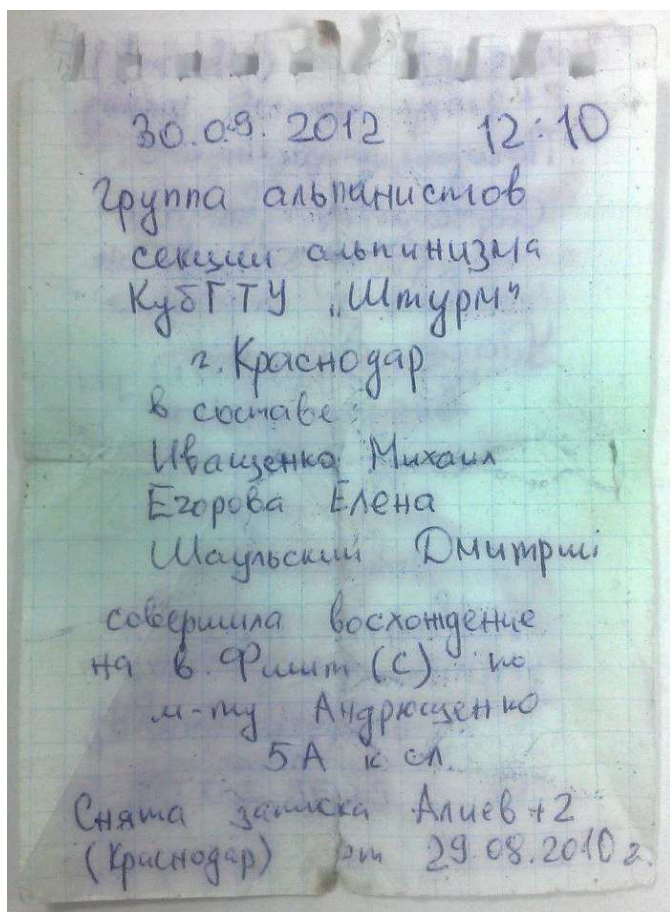 30.09.2012 12:10
Группа альпинистов
секции альпинизма
КубГТУ „Штурм"
г. Краснодар
в составе:
Иващенко Михаил
Егорова Елена
Шаульский Дмитрий
совершила восхождение
на в. Фишт (С) по
м-ту Андрющенко
5А к сл.
Снята записка Алиев +2
(Краснодар) от 29.08.2010 г.